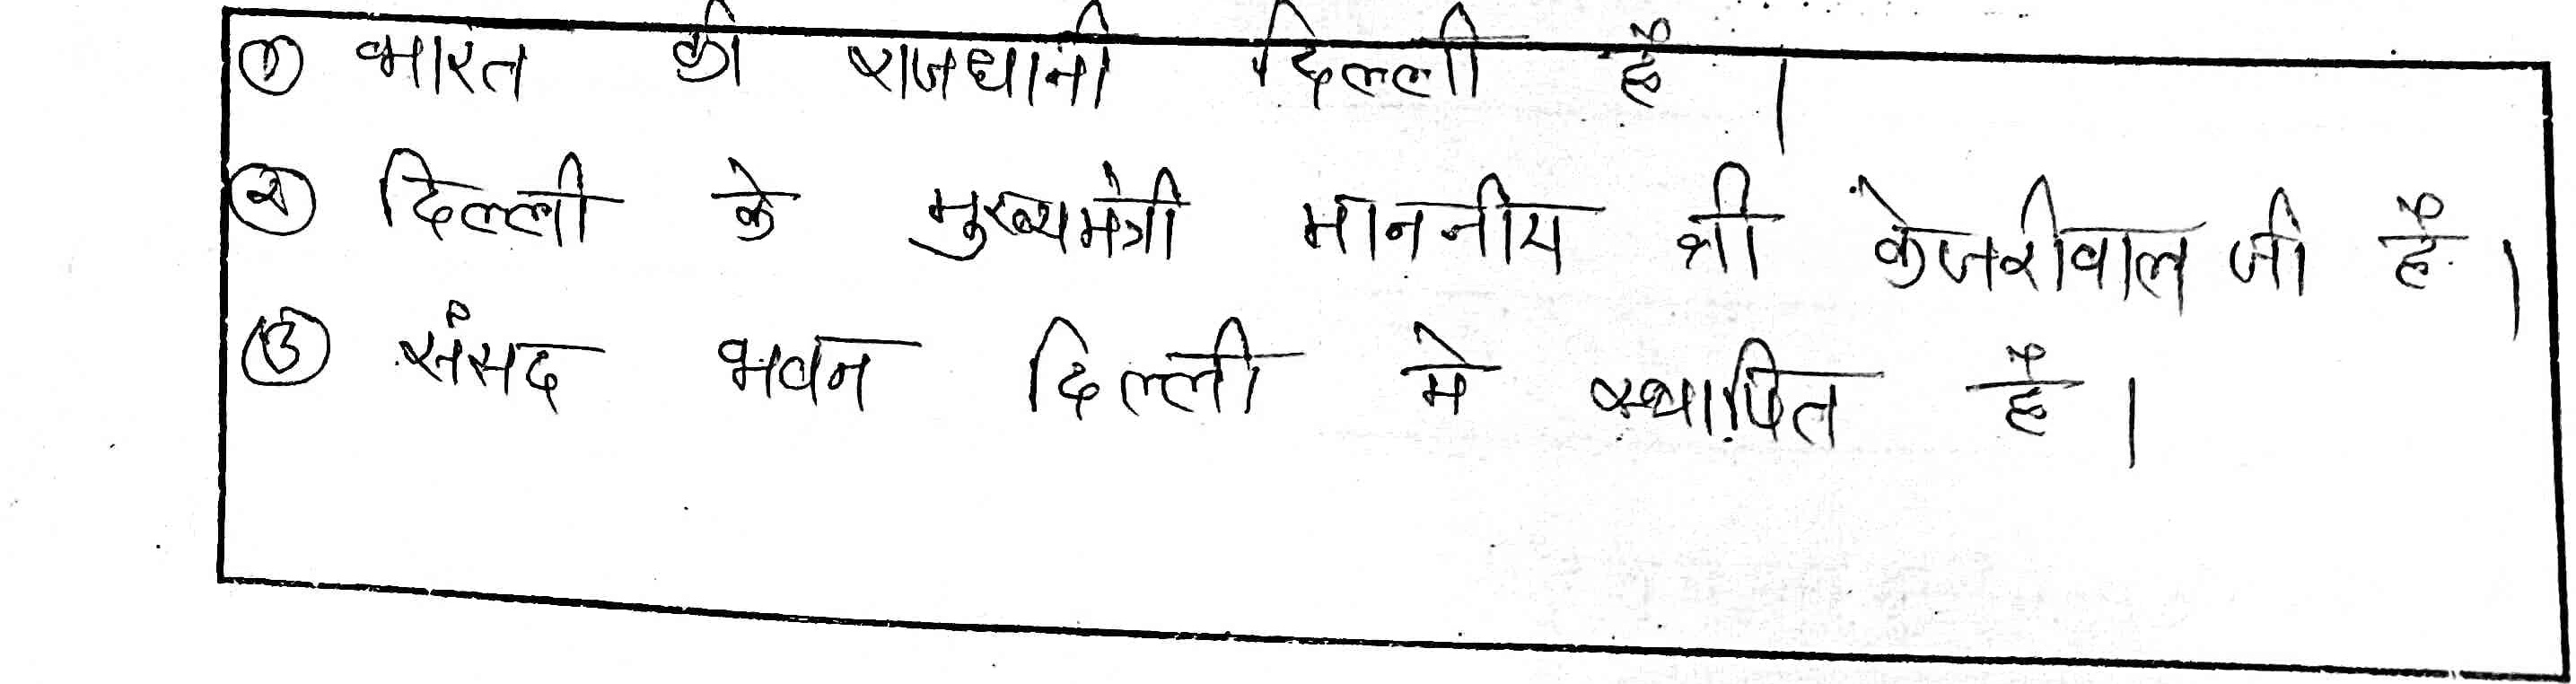 ① भारत की राजधानी दिल्ली है ।
② दिल्ली के मुख्यमंत्री माननीय श्री केजरीवाल जी है ।
③ संसद भवन दिल्ली मे स्थापित है ।